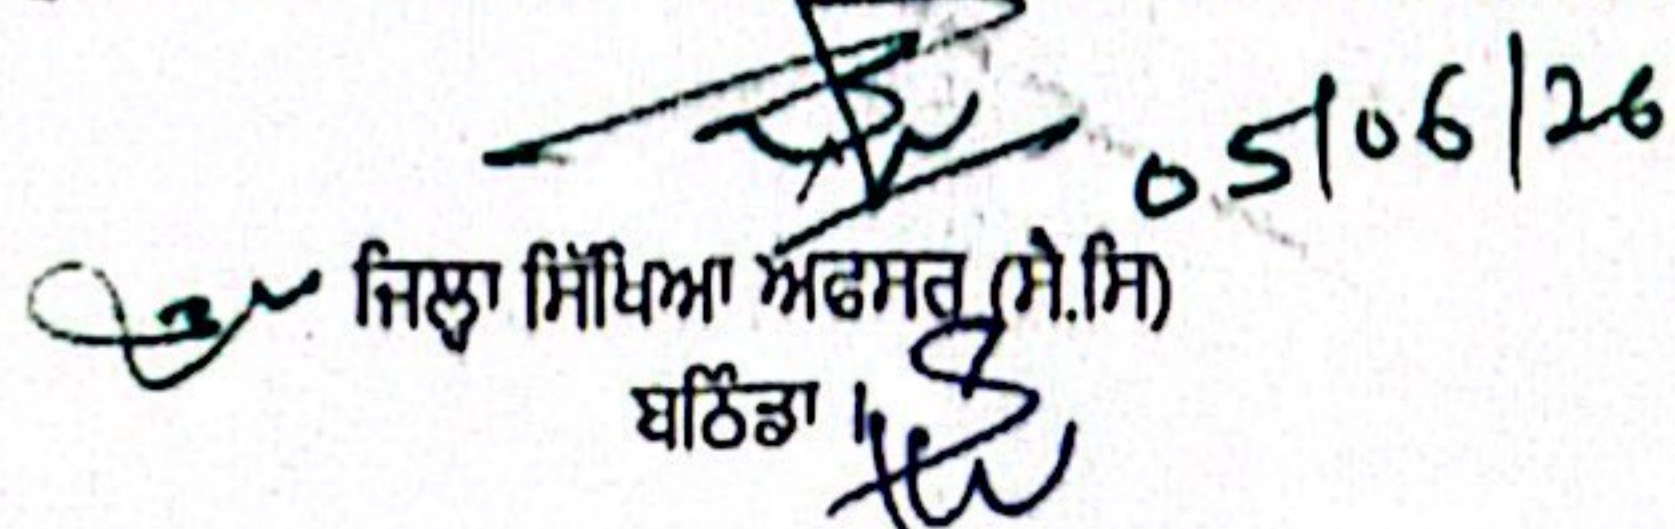 05/06/26
ਜਿਲ੍ਹਾ ਸਿੱਖਿਆ ਅਫਸਰ (ਸੇ.ਸਿ)
ਬਠਿੰਡਾ।